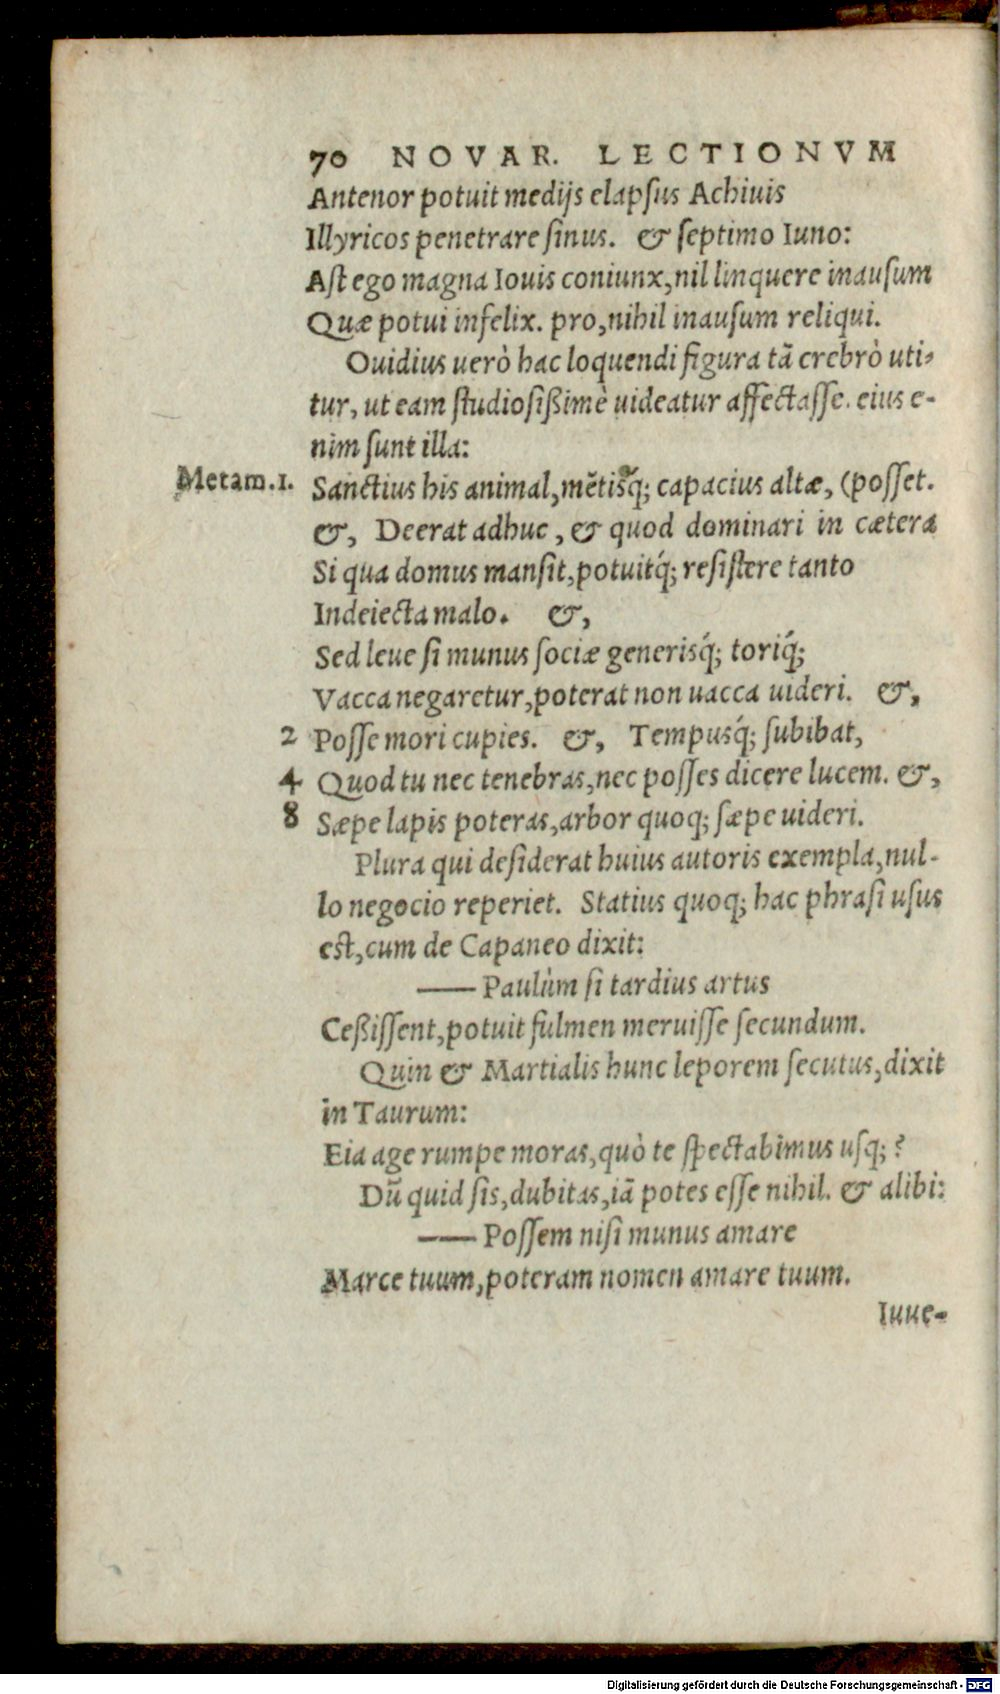 70 NOVAR. LECTIONVM
Antenor potuit medijs elapſus Achiuis
Illyricos penetrare ſinus. & ſeptimo Iuno:
Aſt ego magna Iouis coniunx, nil linquere inauſum
Quæ potui infelix. pro, nihil inauſum reliqui.
Ouidius uerò hac loquendi figura tã crebrò uti-
tur, ut eam ſtudioſißimè uideatur affectaſſe. eius e-
nim ſunt illa:
Metam.1. Sanctius his animal, mẽtisq́; capacius altæ, (poſſet.
&, Deerat adhuc, & quod dominari in cætera
Si qua domus manſit, potuitq́; reſiſtere tanto
Indeiecta malo. &,
Sed leue ſi munus ſociæ generisq́; toriq́;
Vacca negaretur, poterat non uacca uideri. &,
2 Poſſe mori cupies. &, Tempusq́; ſubibat,
4 Quod tu nec tenebras, nec poſſes dicere lucem. &,
8 Sæpe lapis poteras, arbor quoq; ſæpe uideri.
Plura qui deſiderat huius autoris exempla, nul-
lo negocio reperiet. Statius quoq; hac phraſi uſus
est, cum de Capaneo dixit:
—— Paulùm ſi tardius artus
Ceßiſſent, potuit fulmen meruiſſe ſecundum.
Quin & Martialis hunc leporem ſecutus, dixit
in Taurum:
Eia age rumpe moras, quò te ſpectabimus uſq;?
Dũ quid ſis, dubitas, iã potes eſſe nihil. & alibi:
—— Poſſem niſi munus amare
Marce tuum, poteram nomen amare tuum.
Iuue-
Digitalisierung gefördert durch die Deutsche Forschungsgemeinschaft - DFG